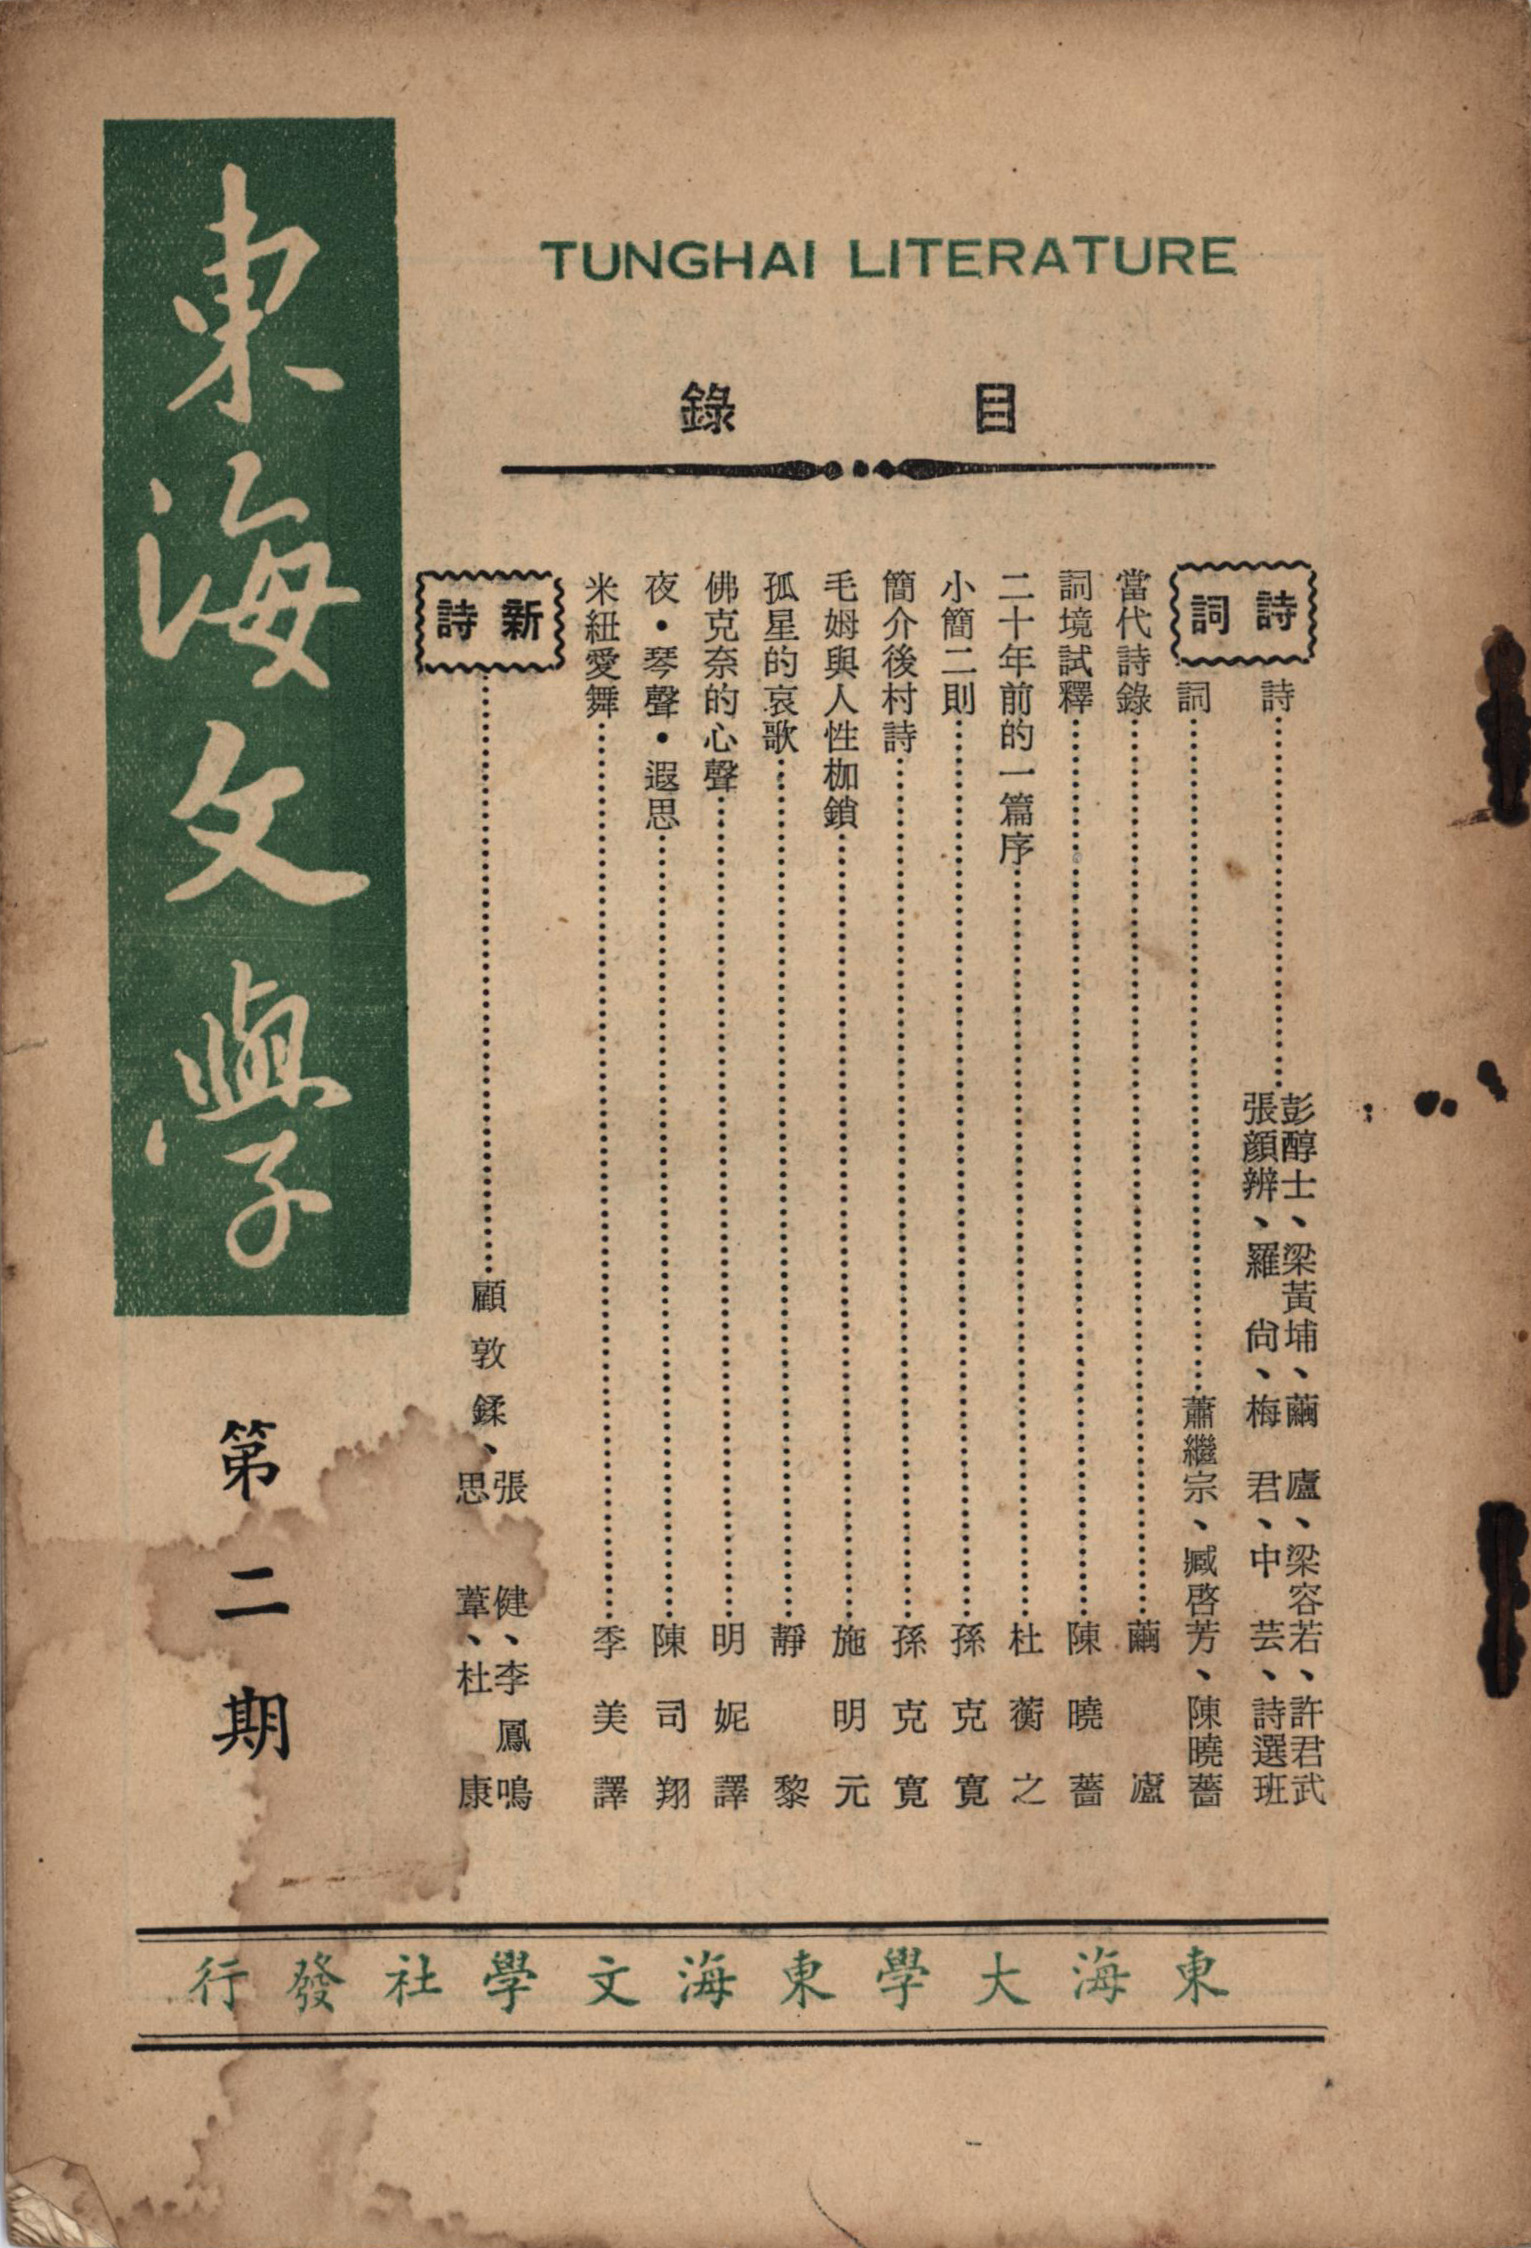 TUNGHAI LITERATURE
目錄
詩詞
詩……彭醇士、梁黃埔、繭廬、梁容若、許君武
張顏辨、羅尙、梅君、中芸、詩選班
詞……蕭繼宗、臧啓芳、陳曉薔
當代詩錄……繭廬
詞境試釋……陳曉薔
二十年前的一篇序……杜蘅之
小簡二則……孫克寬
簡介後村詩……孫克寬
毛姆與人性枷鎖……施明元
孤星的哀歌……靜黎
佛克奈的心聲……明妮譯
夜・琴聲・遐思……陳司翔
米紐愛舞……季美譯
新詩……顧敦鍒、張健、李鳳鳴
思葦、杜康
東海文學
第二期
東海大學東海文學社發行